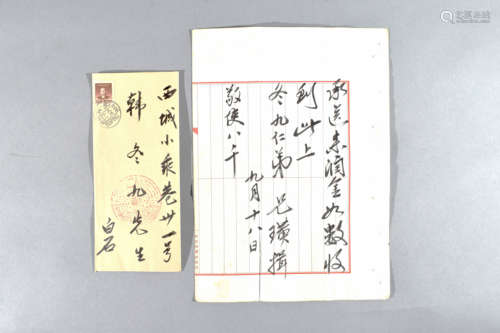 承送来润金如数收
到此上
冬九仁弟 兄璜揖
敬使八千
九月十八日
西城小乘巷廿一号
韩冬九先生
白石